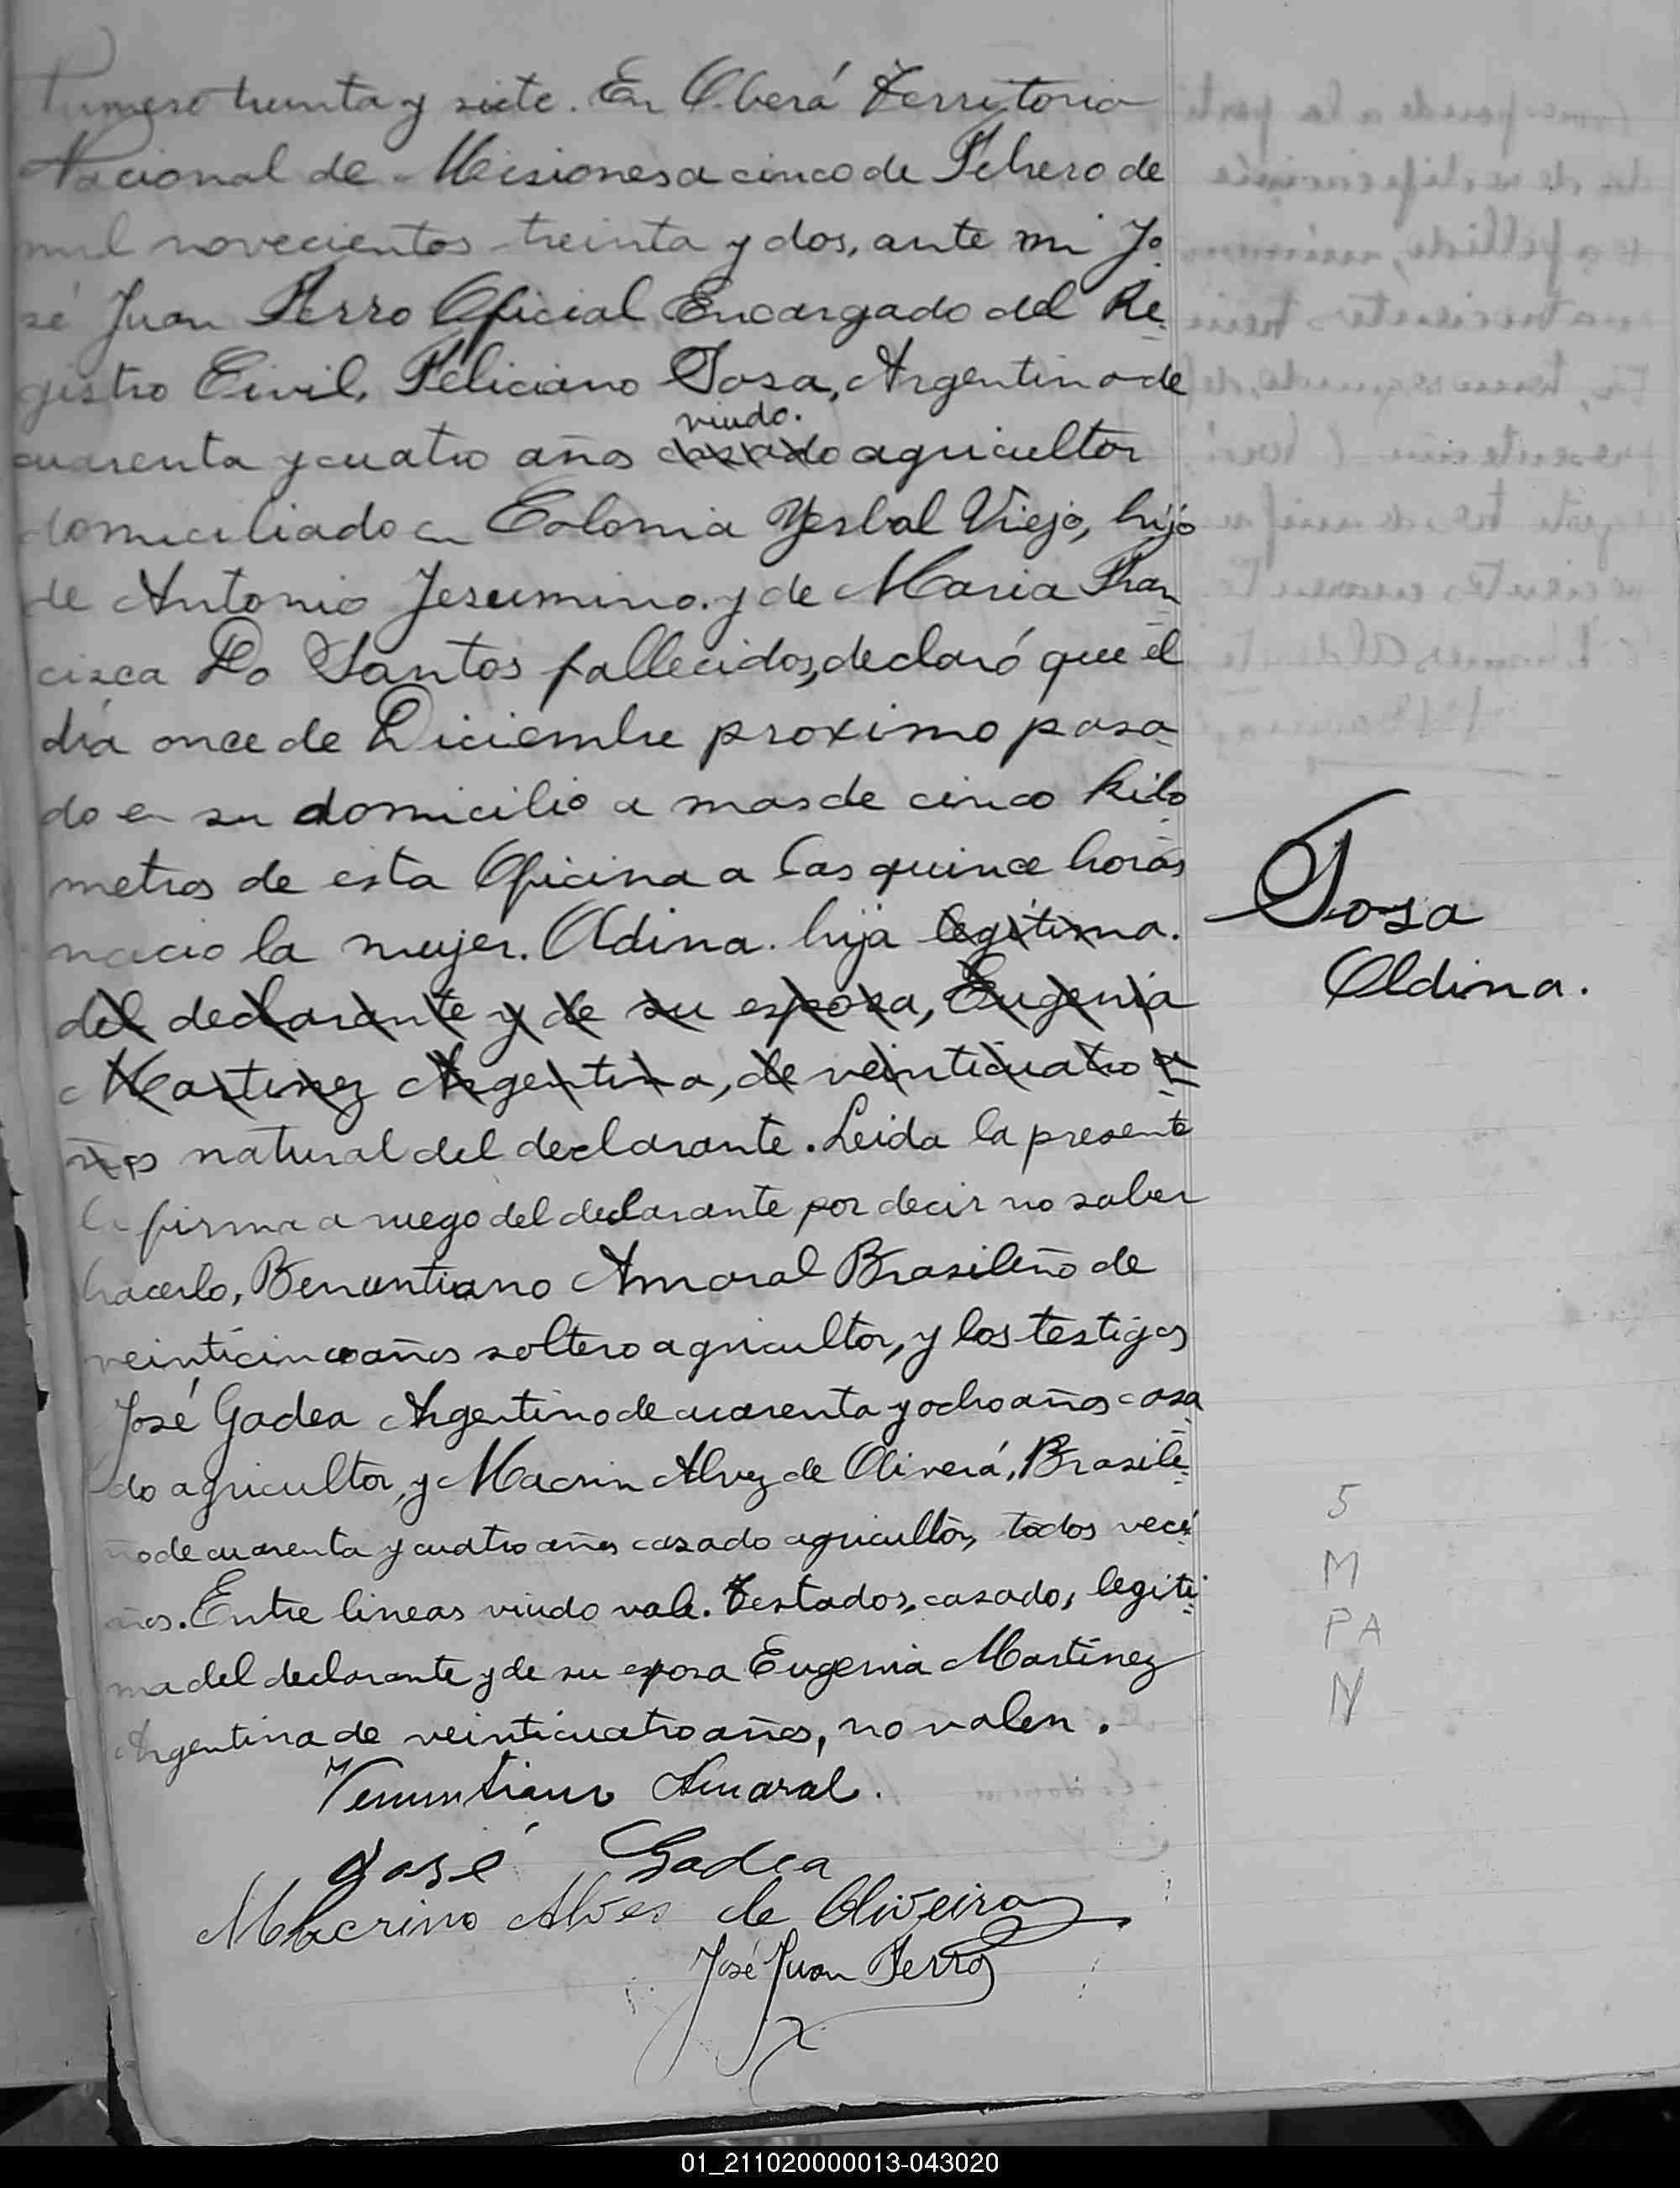 Numero treinta y siete. En Oberá Territorio
Nacional de Misiones a cinco de Febrero de
mil novecientos treinta y dos, ante mi Jo
sé Juan Ferro Oficial Encargado del Re-
gistro Civil, Feliciano Sosa, Argentino de
viudo.
cuarenta y cuatro años casado agricultor
domiciliado en Colonia Yerbal Viejo, hijo
de Antonio Jesumino. y de Maria Fran
cisca Do Santos fallecidos, declaró que el
día once de Diciembre proximo pasa-
do en su domicilio a mas de cinco kilo-
metros de esta Oficina a las quince horas
nacio la mujer. Oldina. hija legitima.
del declarante y de su esposa, Eugenia
Martinez Argentina, de veinticuatro a-
ños natural del declarante. Leida la presente
la firma a ruego del declarante por decir no saber
hacerlo, Benuntiano Amaral Brasileño de
veinticinco años soltero agricultor, y los testigos
José Gadea Argentino de cuarenta y ocho años casa-
do agricultor, y Macrin Alvez de Oliverá, Brasile-
ño de cuarenta y cuatro años casado agricultor, todos veci-
nos. Entre lineas viudo vale. Testados, casado, legiti-
ma del declarante y de su esposa Eugenia Martinez
Argentina de veinticuatro años, no valen.
Venuntiano Amaral.
José Gadea
Macrino Alves de Oliveira
José Juan Ferro
Sosa
Oldina.
5
M
PA
N
01_211020000013-043020